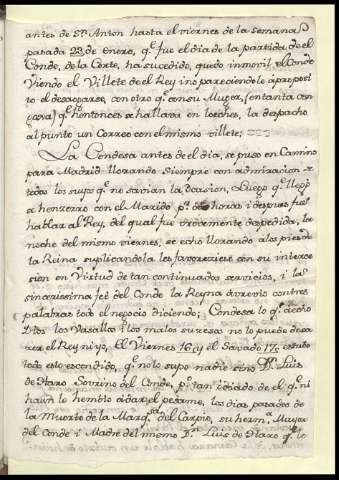 antes de Sn. Anton hasta el viernes de la semana
pasada 23 de Enero, qe. fue el dia de la partida de el
Conde, de la Corte, ha sucedido, quedo inmovil el Conde
Viendo el Villete de el Rey i no pareciendole aproposi
to el desaogarse, con otro qe. con su Muger, (en tanta con
goxa) qe. entonces se hallava en loeches, la despacho
al punto un Correo con el mismo villete;
La Condesa antes de el dia, se puso en Camino
para Madrid llorando siempre con admiracion de
todos los suyos qe. no savian la Ocasion, Luego qe. llego
se honzerro con el Marido pr. dos horas i despues fue
hablar al Rey, del qual fue brevemente despedida, la
noche del mismo viernes, se echo llorando a los pies de
la Reina suplicandola les favoreciese con su interce
sion en Virtud de tan continuados servicios, i la
sincerissima fee del Conde la Reyna atrevio con tres
palabras todo el negocio diciendo; Condesa lo qe. a echo
Dios los Vasallos i los malos sucesos no lo puede desa
acer el Rey ni yo, El Viernes 16 y el Savado 17 estubo
todo esto escondido, qe. no lo supo nadie sino Dn. Luis
de Haro Sovrino del Conde, pr. tan odiado de el qe. ni
haun le hembio a dar el pesame, los dias pasados de
la Muerte de la Marqsa. del Carpio, su herma. Mayor
del Conde i Madre del mismo Dn. Luis de Haro qe. lo